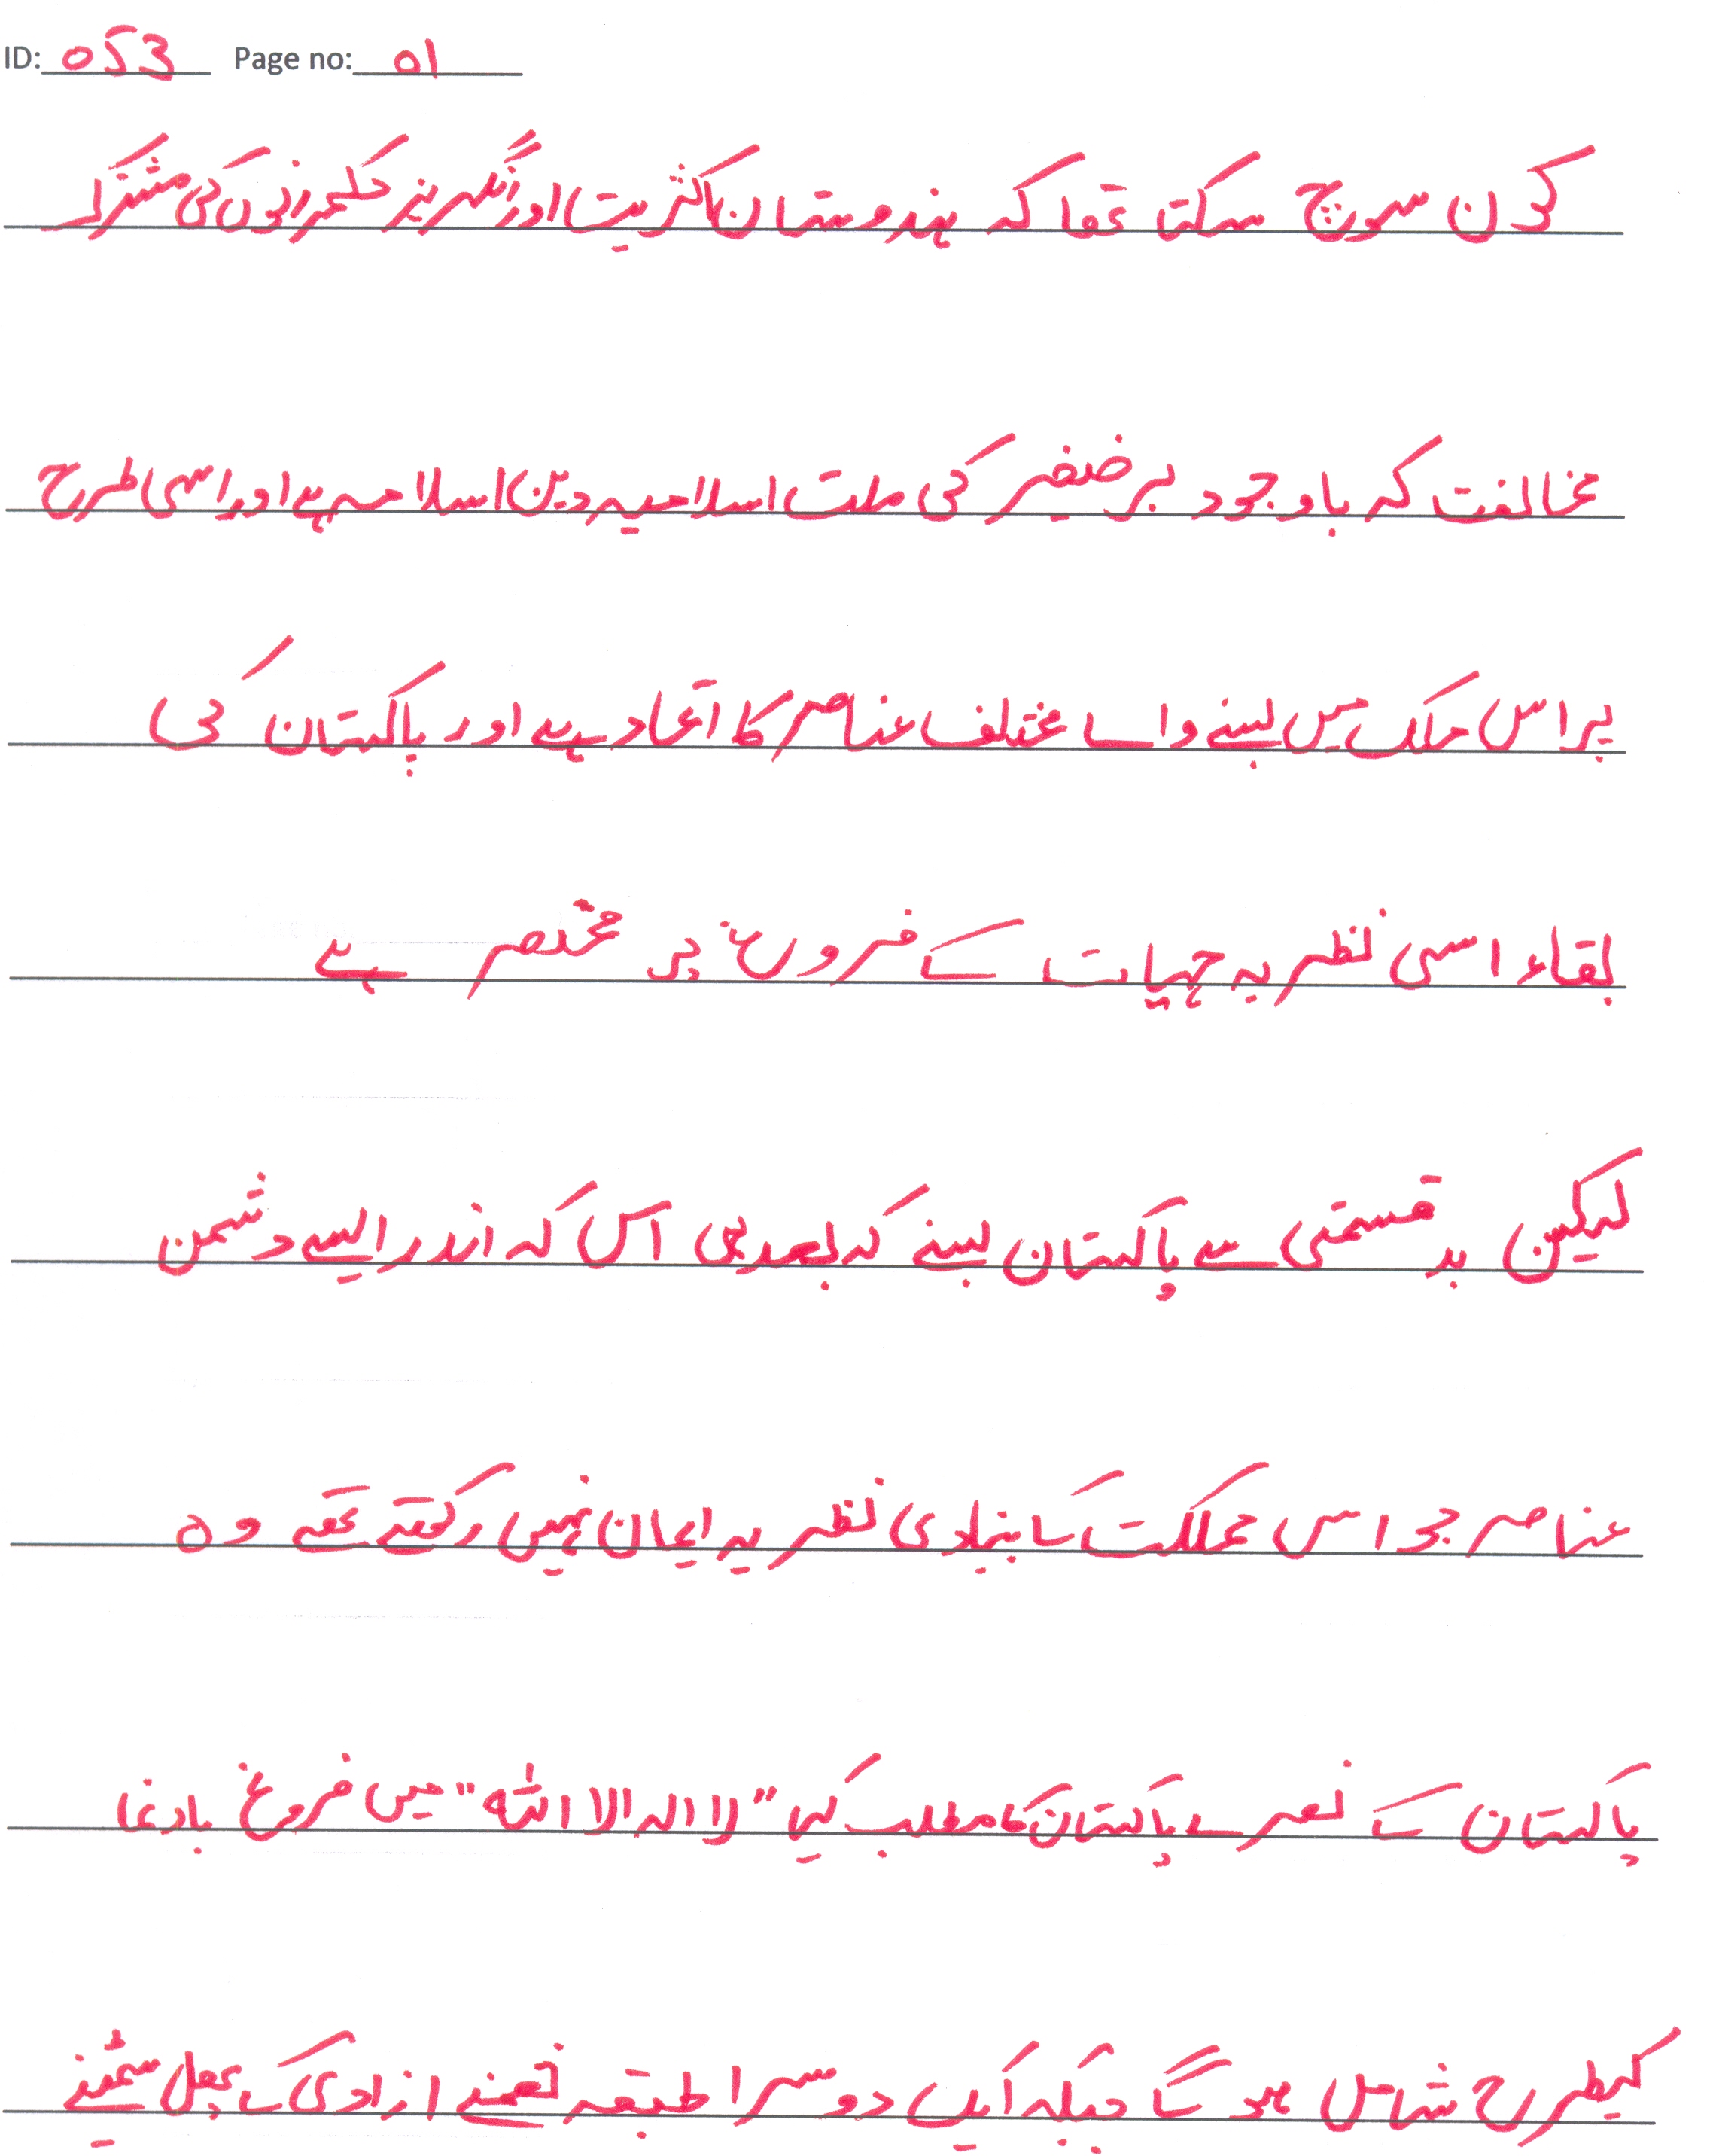 ID: 053 Page no: 01
کون سوچ سکتا تھا کہ ہندوستان اکثریت اور انگریز حکمرانوں کی مشترکہ
مخالفت کہ باوجود برضغیر کی ملت اسلامیہ دین اسلام ہے اور اسی طرح
پر اس ملک میں بسنے والے مختلف عناصر کا اتحاد ہے اور پاکستان کی
بقاء اسی نظریہ حیات کے فروغ پر مختصر ہے
لیکین بد قسمتی سے پاکستان بسنے کہ بعد ہی اس کہ اندر ایسے دشمن
عناصر جو اس مملکت کا بنیادی نظریہ ایمان نہیں رکھتے تھے وہ
پاکستان کے نعرے پاکستان کا مطلب کیا "لا الہ الا اللہ" میں فروغ بادی
کیطرح شامل ہو گا جبکہ ایک دوسرا طبقہ نعنے ازادی کے پھل سمیٹنے